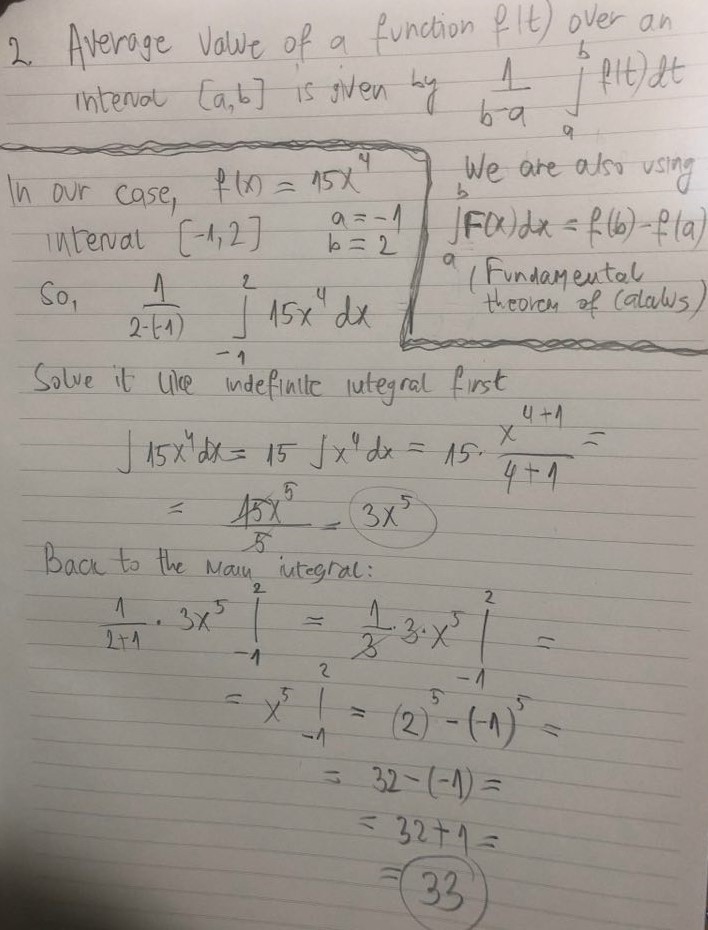 2. Average value of a function f(t) over an
interval [a,b] is given by 1/(b-a) ∫_a^b f(t)dt
In our case, f(x) = 15x^4
interval [-1,2] a = -1
b = 2
So, 1/(2-(-1)) ∫_{-1}^{2} 15x^4 dx
We are also using
∫_a^b F(x)dx = f(b)-f(a)
(Fundamental
theorem of Calculus)
Solve it like indefinite integral first
∫15x^4dx = 15 ∫x^4 dx = 15 · x^{4+1}/(4+1) =
= 15x^5/5 = 3x^5
Back to the main integral:
1/(2+1) · 3x^5 |_{-1}^{2} = 1/3 · 3 · x^5 |_{-1}^{2} =
= x^5 |_{-1}^{2} = (2)^5 - (-1)^5 =
= 32 - (-1) =
= 32 + 1 =
= 33